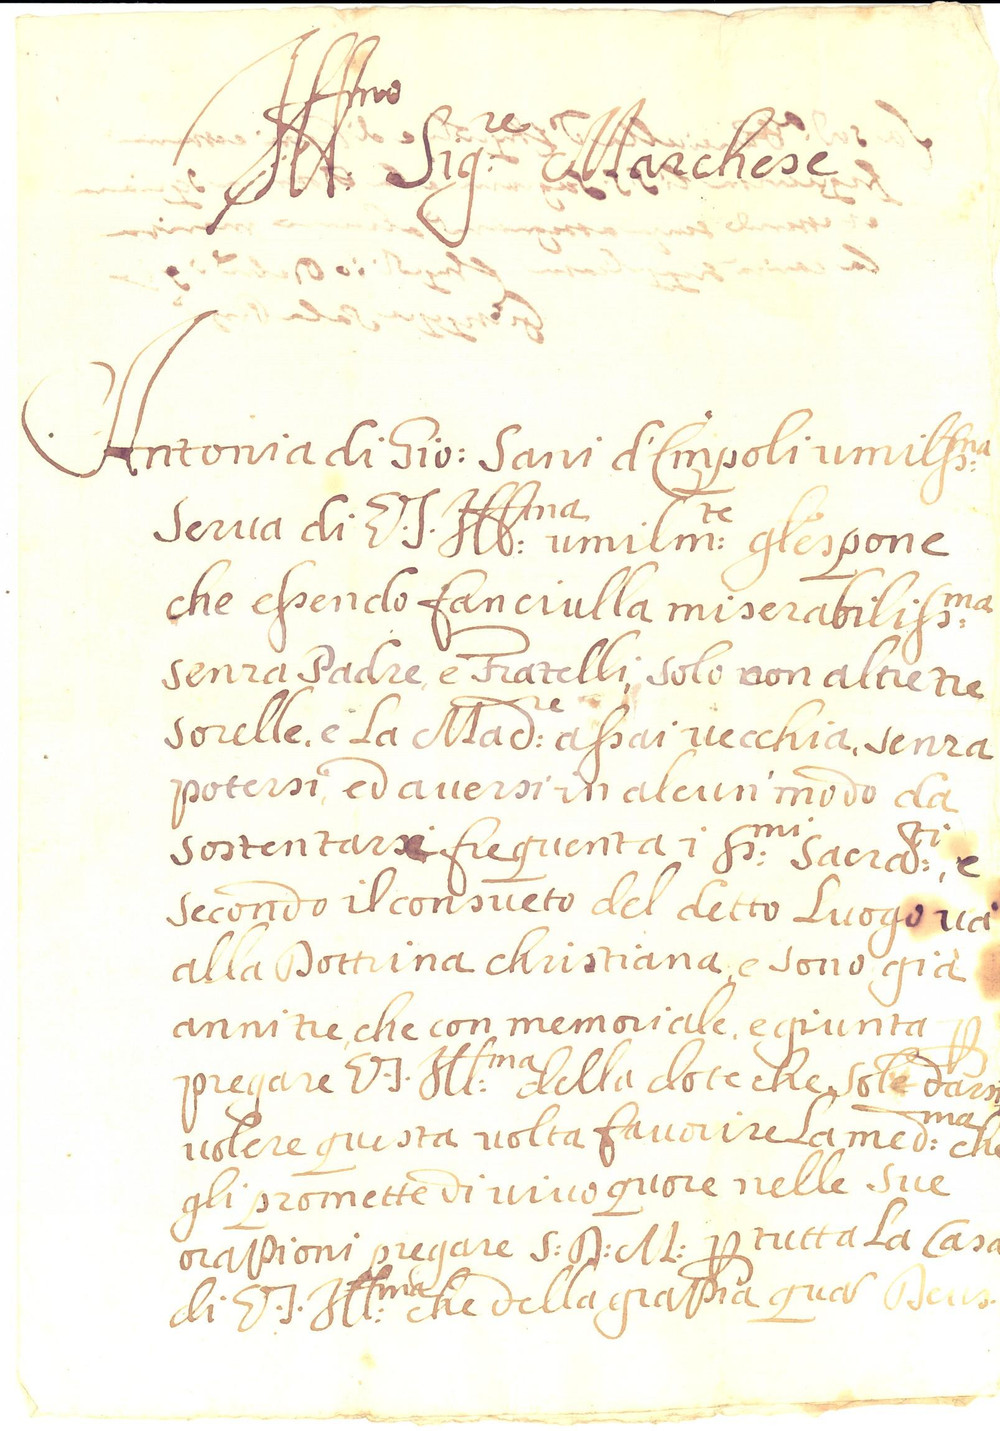 Ill:mo Sig:re Marchese
Antonia di Gio: Sani d'Empoli umiliss:ma
serua di V.S. Ill:ma umilm:te gl'espone
che essendo fanciulla miserabiliss:ma
senza Padre, e Fratelli, solo con altre tre
sorelle, e La Mad:re assai uecchia, senza
potersi, ed auersi in alcun modo da
sostentarsi frequenta i SS:mi Sacra:ti, e
secondo il consueto del detto Luogo ua
alla Dottrina christiana, e sono già
anni tre, che con memoriale, e giunta p
pregare V.S. Ill:ma della dote che sole darsi
uolere questa uolta fauorire La med:ma che
gli promette di uiuo quore nelle sue
orazioni pregare S: D: M: p tutta La Casa
di V.S. Ill:ma che della grazia quas Deus.